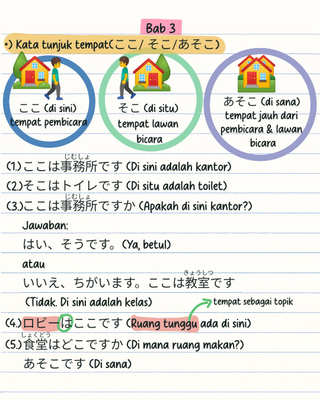 Bab 3
•) Kata tunjuk tempat(ここ/ そこ/あそこ)
ここ (di sini)
tempat pembicara
そこ (di situ)
tempat lawan
bicara
あそこ (di sana)
tempat jauh dari
pembicara & lawan
bicara
じむしょ
(1.)ここは事務所です (Di sini adalah kantor)
(2.)そこはトイレです (Di situ adalah toilet)
じむしょ
(3.)ここは事務所ですか (Apakah di sini kantor?)
Jawaban:
はい、そうです。(Ya, betul)
atau
きょうしつ
いいえ、ちがいます。ここは教室です
(Tidak. Di sini adalah kelas)
tempat sebagai topik
(4.)ロビーはここです (Ruang tunggu ada di sini)
しょくどう
(5.)食堂はどこですか (Di mana ruang makan?)
あそこです (Di sana)